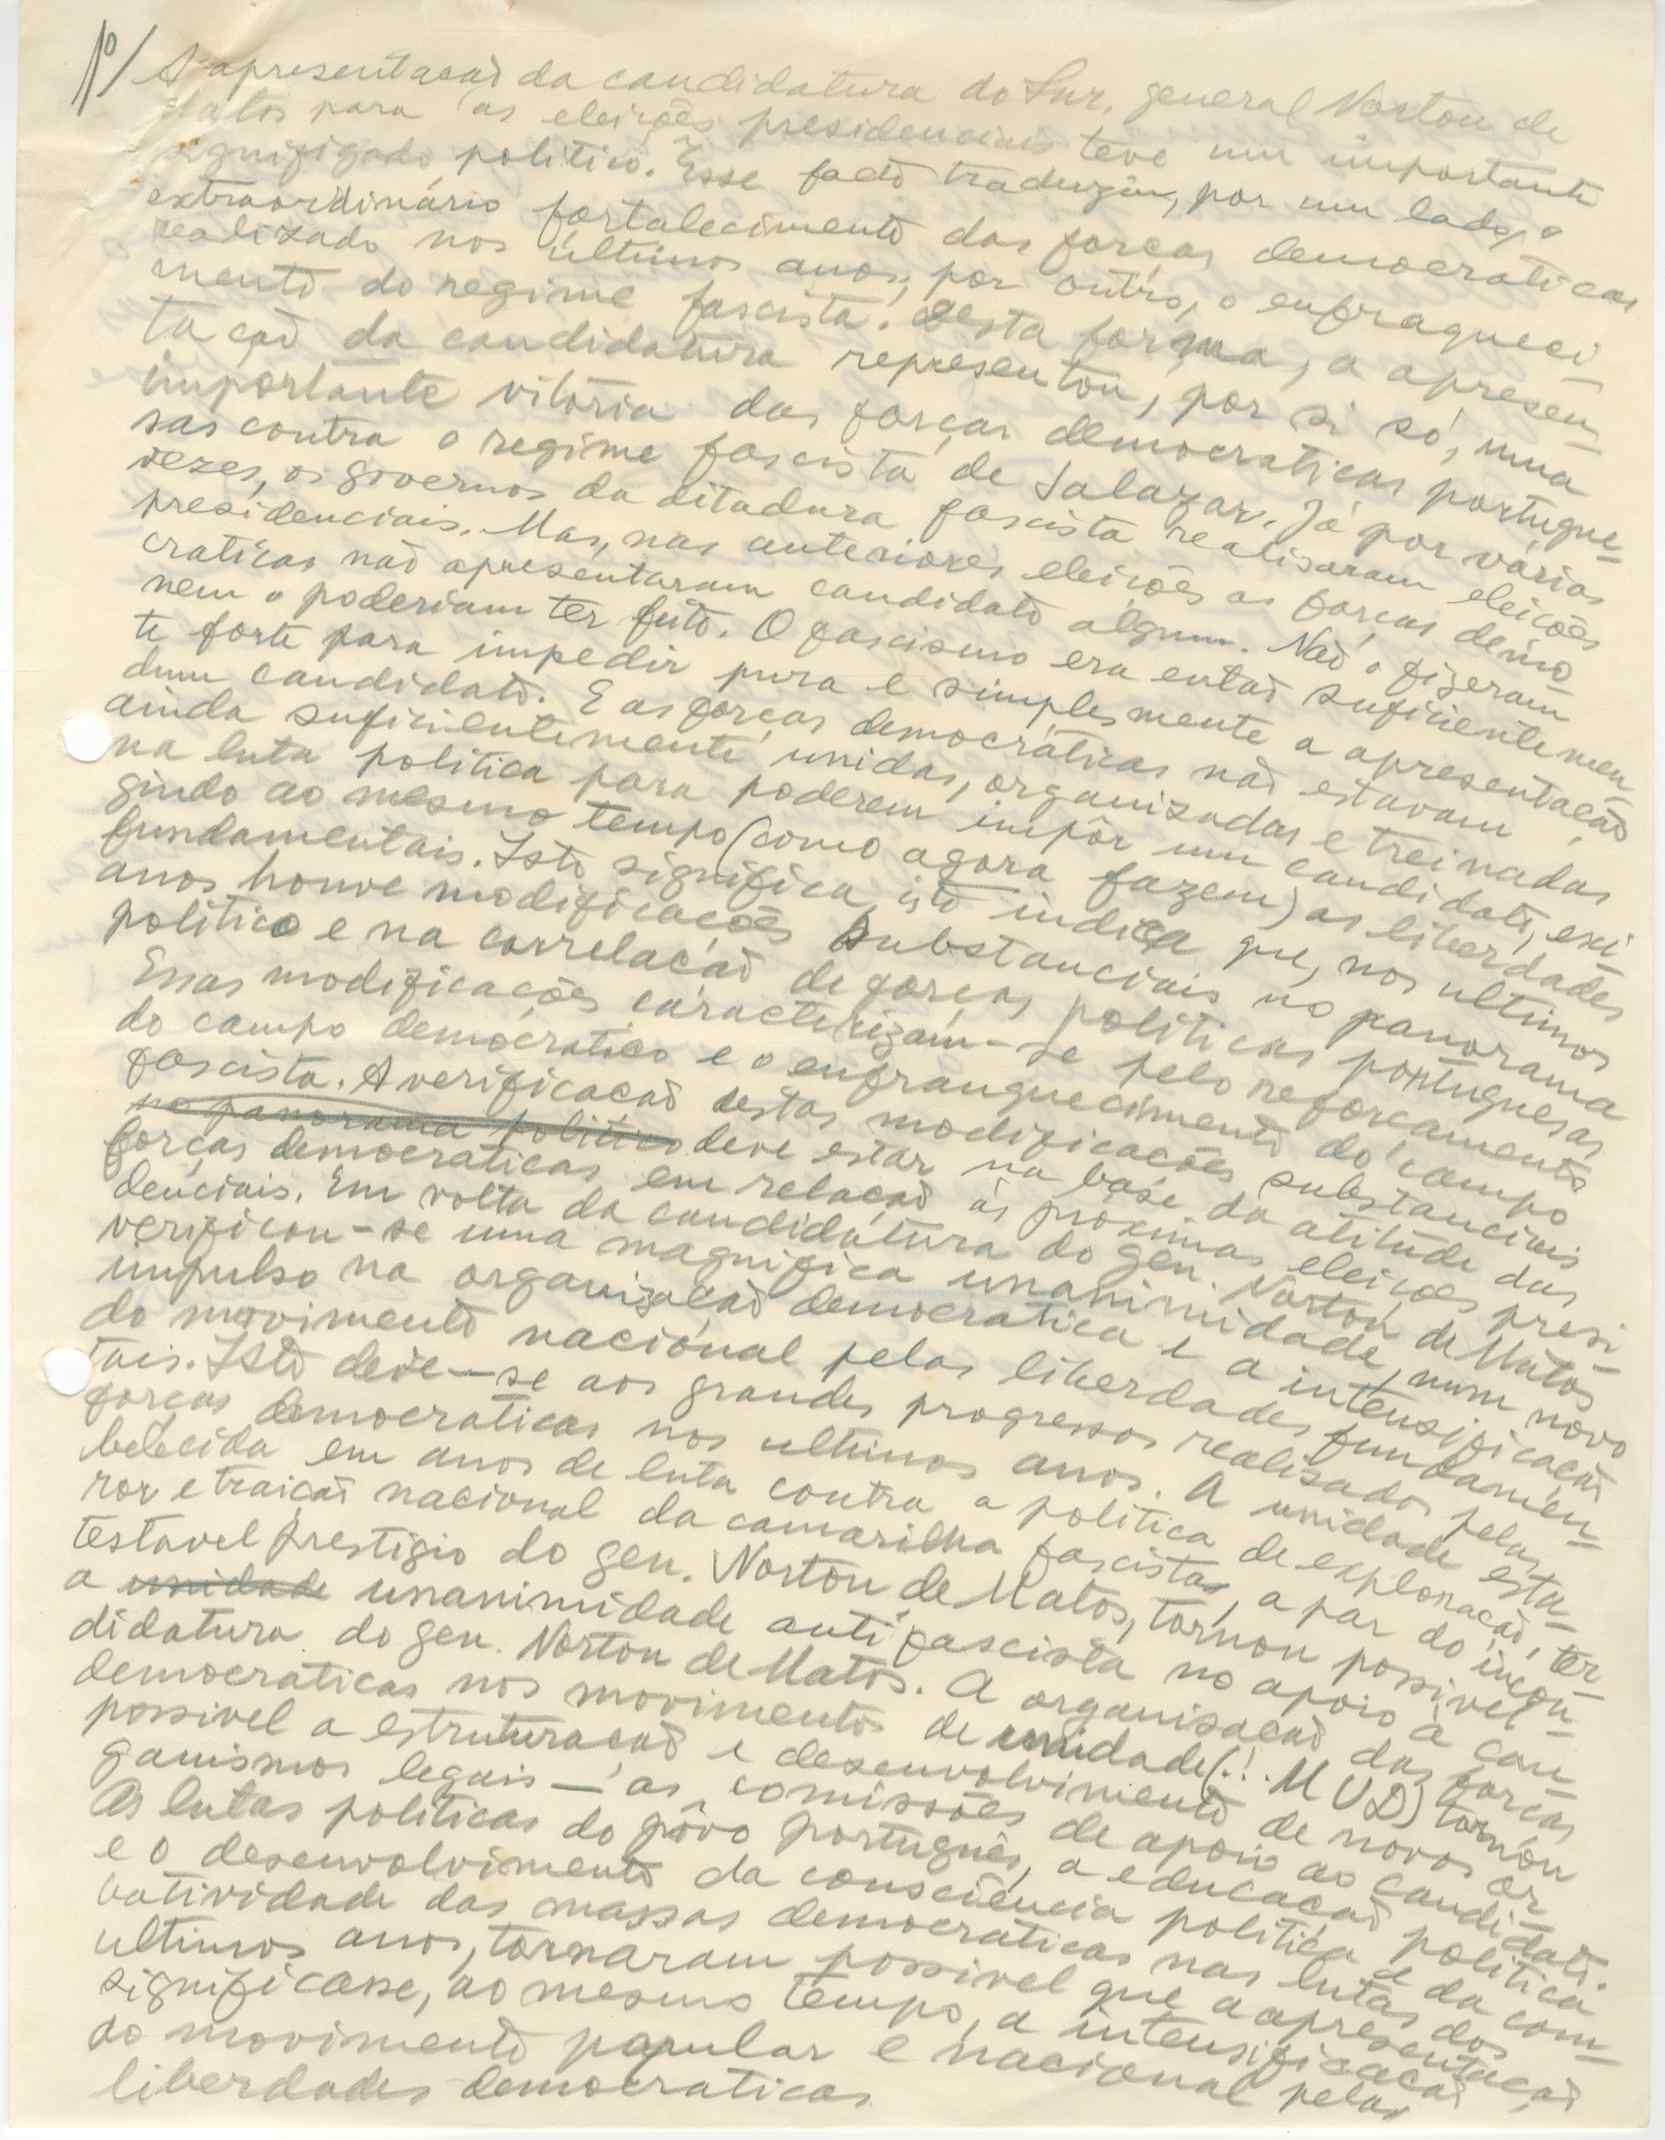 1º/ A apresentação da candidatura do Snr. general Norton de
Matos para as eleições presidenciais teve um importante
significado politico. Esse facto traduziu, por um lado, o
extraordinário fortalecimento das forças democraticas
realizado nos últimos anos; por outro, o enfraqueci
mento do regime fascista. Desta forma, a apresen-
tação da candidatura representou, por si só, uma
importante vitória das forças democraticas portugue-
sas contra o regime fascista de Salazar. Já por várias
vezes, os governos da ditadura fascista realisaram eleições
presidenciais. Mas, nas anteriores eleições as forças demo
craticas não apresentaram candidato algum. Não o fizeram
nem o poderiam ter feito. O fascismo era então suficientemen
te forte para impedir pura e simplesmente a apresentação
dum candidato. E as forças democráticas não estavam
ainda suficientemente unidas, organizadas e treinadas
na luta politica para poderem impôr um candidato, exi
gindo ao mesmo tempo (como agora fazem) as liberdades
fundamentais. Isto significa, isto indica que, nos ultimos
anos houve modificações substanciais no panorama
politico e na correlação de forças politicas portuguesas
Essas modificações caracterizam-se pelo reforçamento
do campo democratico e o enfranquecimento do campo
fascista. A verificação destas modificações substanciais
no panorama politico deve estar na base da atitude das
forças democraticas em relação às proximas eleições presi-
denciais. Em volta da candidatura do gen. Norton de Matos
verificou-se uma magnifica unanimidade, num novo
impulso na organização democratica e a intensificação
do movimento nacional pelas liberdades fundamen-
tais. Isto deve-se aos grandes progressos realisados pelas
forças democraticas nos ultimos anos. A unidade esta-
belecida em anos de luta contra a politica de exploração, ter-
ror e traição nacional da camarilha fascista, a par do incon-
testavel prestigio do gen. Norton de Matos, tornou possivel
a unidade unanimidade antifascista no apoio à can-
didatura do gen. Norton de Matos. A organisação das forças
democraticas nos movimentos de unidade (.!. MUD) tornou
possivel a estruturação e desenvolvimento de novos or
ganismos legais — as comissões de apoio ao candidato.
As lutas politicas do pôvo português, a educação politica
e o desenvolvimento da consciência politica e da com-
batividade das massas democraticas nas lutas dos
ultimos anos, tornaram possivel que a apresentação
significasse, ao mesmo tempo, a intensificação
do movimento popular e nacional pelas
liberdades democraticas